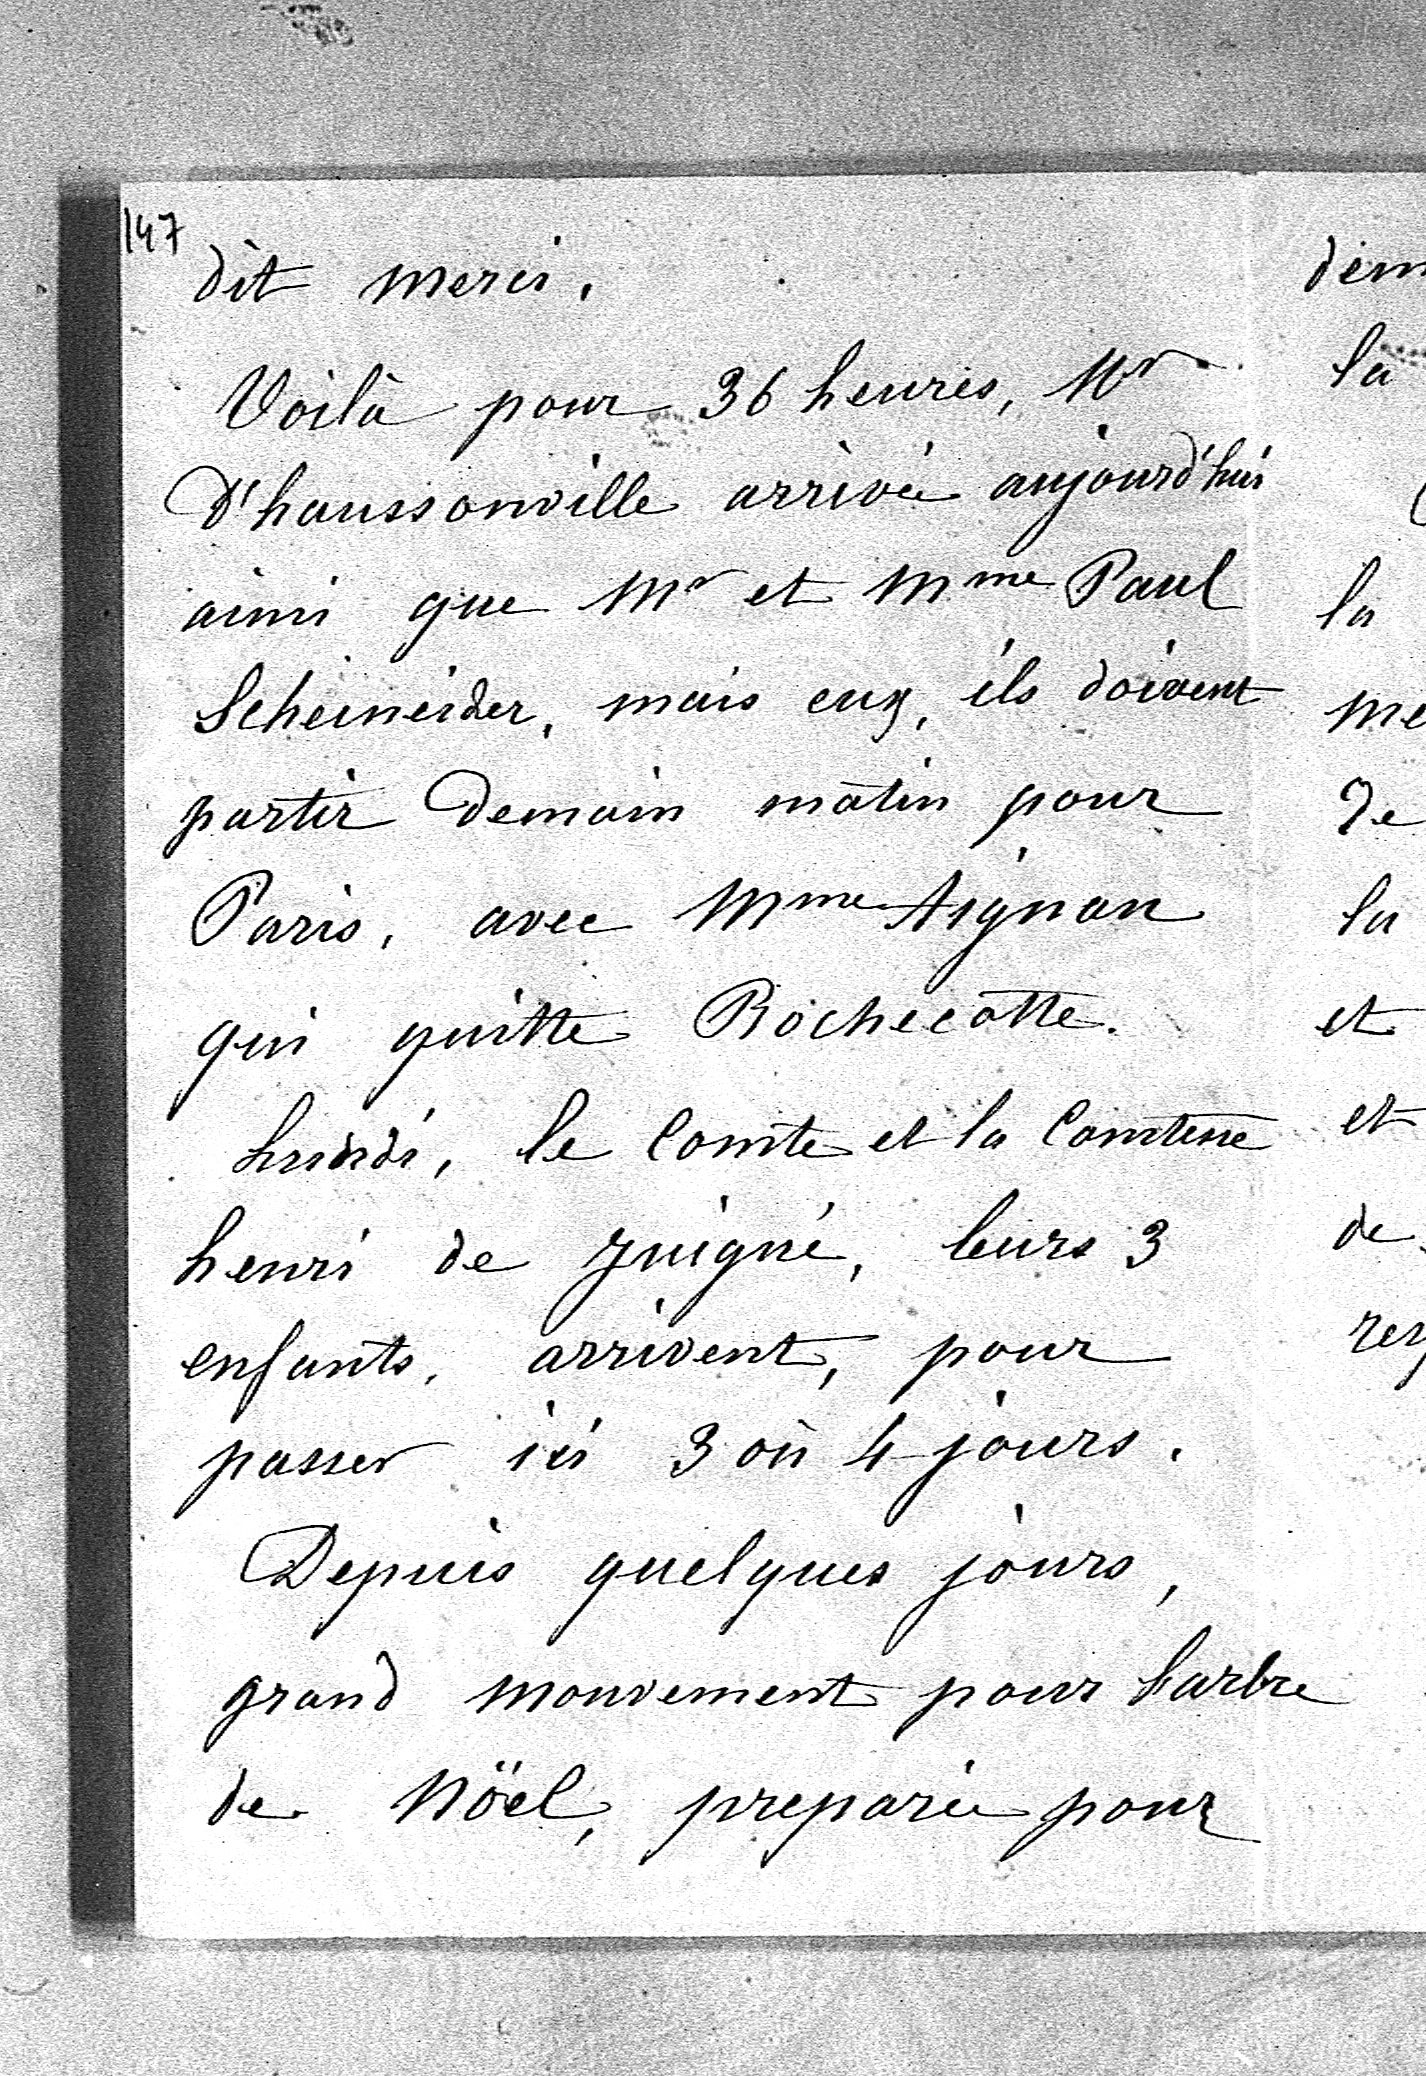 147
dit merci.
Voilà pour 36 heures, Mr
D'haussonville arrivée aujourd'hui
ainsi que Mr et Mme Paul
Scheineider, mais eux, ils doivent
partir Demain matin pour
Paris, avec Mme Aignan
qui quitte Rochecotte.
Lundi, le Comte et la Comtesse
henri de Juigné, leurs 3
enfants, arrivent, pour
passer ici 3 où 4 jours.
Depuis quelques jours,
grand mouvement pour l'arbre
de Nöel, preparée pour
la
la
me
De
la
et
et
de